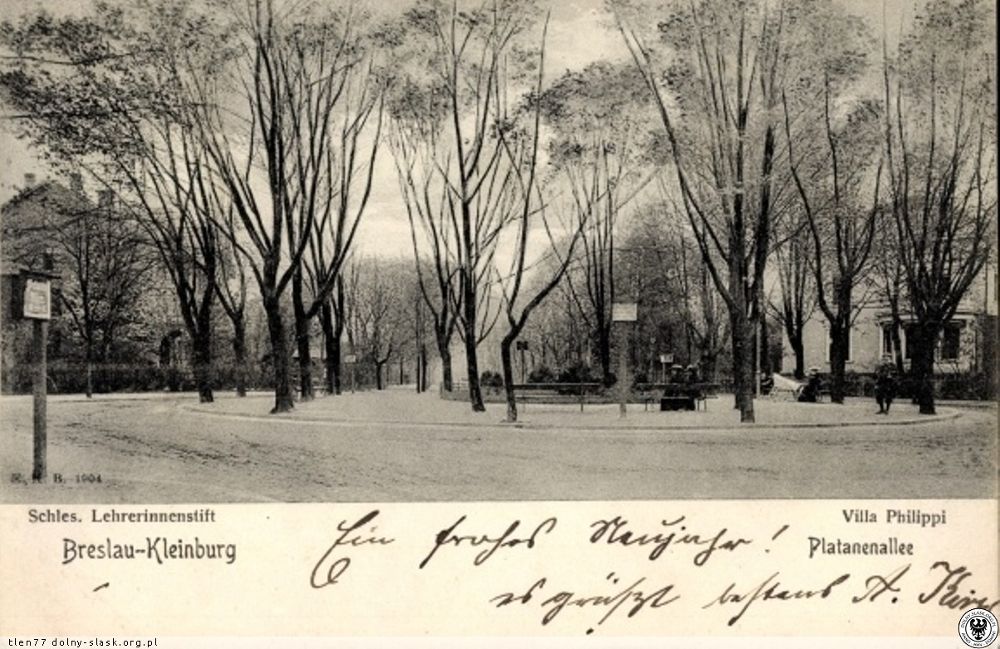 B. 1904
Schles. Lehrerinnenstift
Villa Philippi
Breslau-Kleinburg
Platanenallee
Ein frohes Neujahr!
es grüßt bestens A.
tlen77 dolny-slask.org.pl